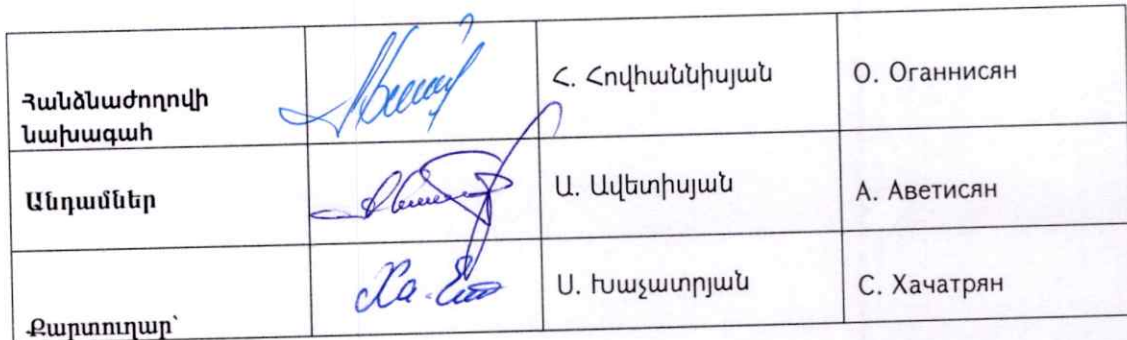 Հանձնաժողովի
նախագահ
Հ. Հովհաննիսյան
О. Оганнисян
Անդամներ
Ա. Ավետիսյան
А. Аветисян
Քարտուղար՝
Ս. Խաչատրյան
С. Хачатрян